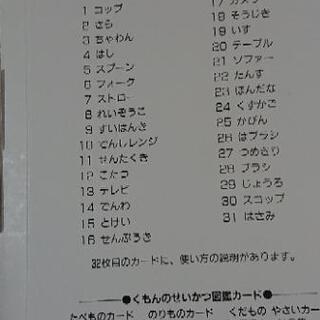 1 コップ
2 さら
3 ちゃわん
4 はし
5 スプーン
6 フォーク
7 ストロー
8 れいぞうこ
9 すいはんき
10 でんしレンジ
11 せんたくき
12 こたつ
13 テレビ
14 でんわ
15 とけい
16 せんぷうき
17 カメラ
18 そうじき
19 いす
20 テーブル
21 ソファー
22 たんす
23 ほんだな
24 くずかご
25 かびん
26 はブラシ
27 つめきり
28 ブラシ
29 じょうろ
30 スコップ
31 はさみ
32枚目のカードに、使い方の説明があります。
●くもんのせいかつ図鑑カード●
たべものカード のりものカード くだもの やさいカー